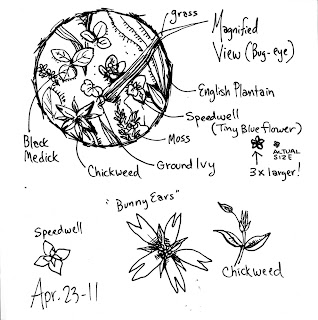 grass
Magnified
View (Bug-eye)
English Plantain
Speedwell
(Tiny Blue flower)
ACTUAL
SIZE
3x larger!
Moss
Ground Ivy
Chickweed
Black
Medick
Speedwell
"Bunny Ears"
Chickweed
Apr. 23-11